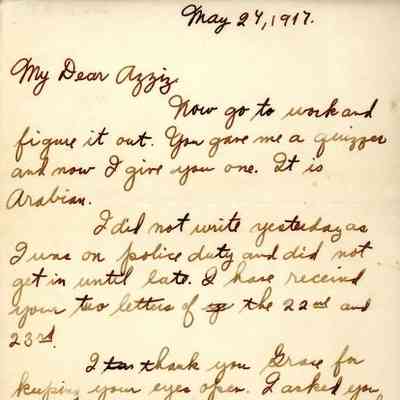 May 24, 1917.
My Dear Azziz,
Now go to work and
figure it out. You gave me a quizzer
and now I give you one. It is
Arabian.
I did not write yesterday as
I was on police duty and did not
get in until late. I have received
your two letters of the 22nd and
23rd.
I thank you Grace for
keeping your eyes open. I asked you